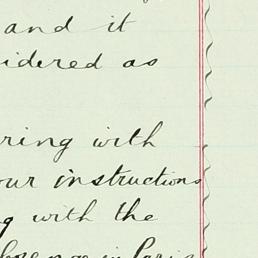 and it
idered as
ring with
our instructions
g with the
in Paris